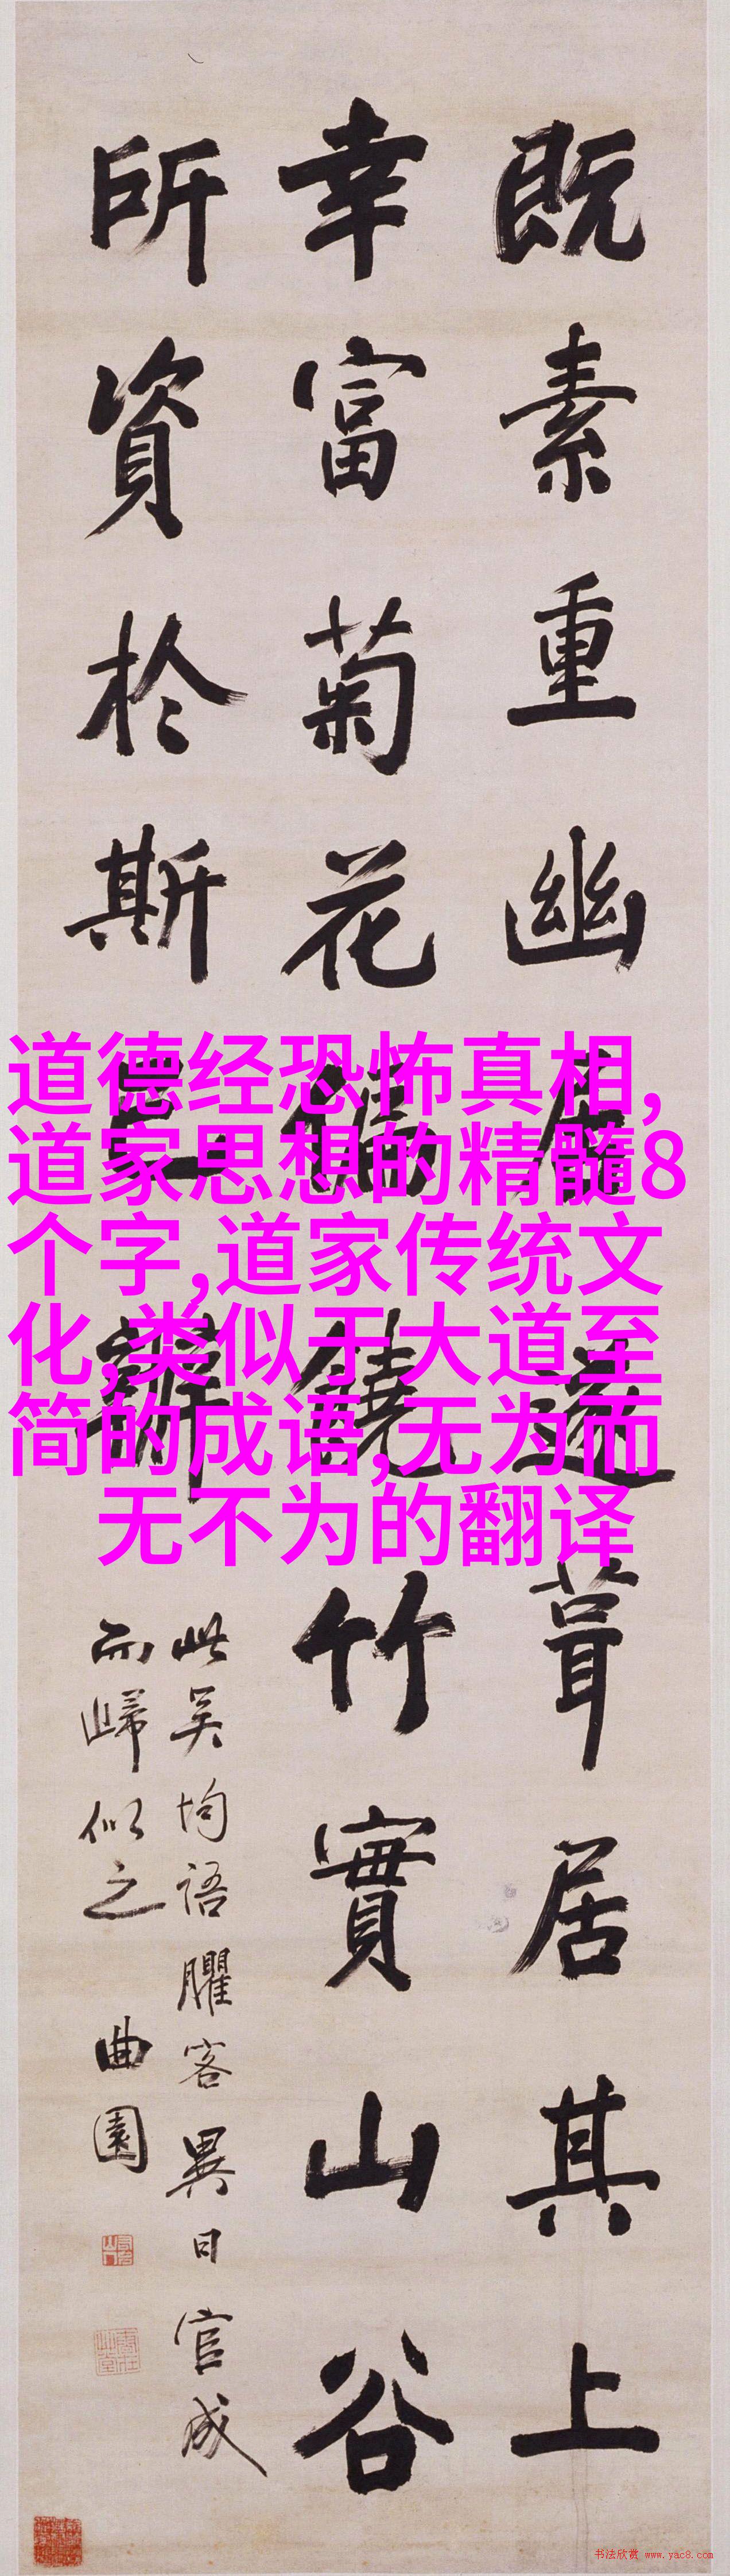 既素重幽居遂葺居其上
幸富菊花偏饒竹實山谷
所資於斯已辦
此吴均語臞客異日官成
而歸似之 曲園
道德经恐怖真相,
道家思想的精髓8
个字,道家传统文
化,类似于大道至
简的成语,无为而
无不为的翻译
书法欣赏 www.yac8.com